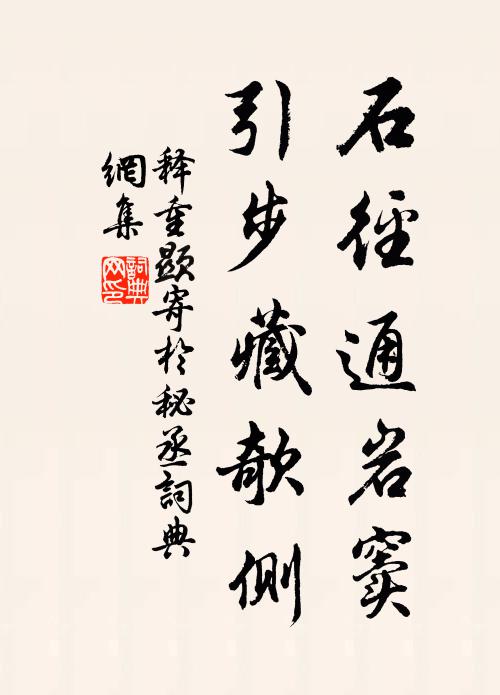 石徑通岩竇
引步藏欹側
释重顯寄於秘丞詞典
網集
詞典
网印